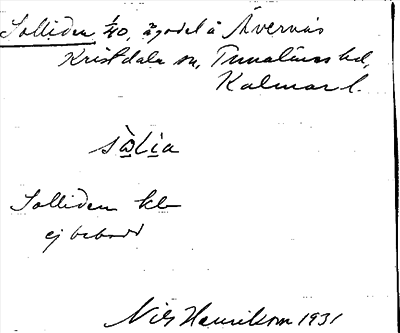 Solliden 1/40, ägodel å Åvernäs
Kristdala sn, Tunaläns hd,
Kalmar l.
sòlia
Solliden kb
ej bebodd
Nils Henrikson 1931